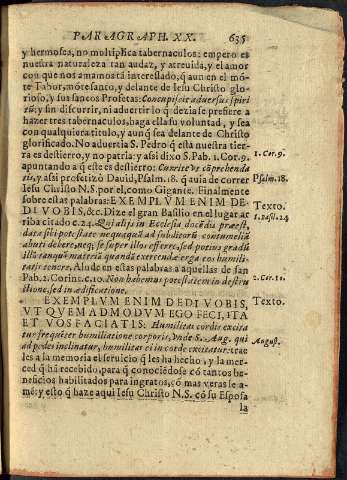 PARAGRAPH. XX. 635
y hermosea, no multiplica tabernaculos: empero es
nuestra naturaleza tan audaz, y atreuida, y el amor
con que nos amamos tā interessado, q̄ aun en el mō-
te Tabor, mōte santo, y delante de Iesu Christo glo-
rioso, y sus santos Profetas: Concupiscit aduersus spiri
tū: y sin discurrir, ni aduertir lo q̄ dezia se prefiere a
hazer tres tabernaculos, haga ella su voluntad, y sea
con qualquiera titulo, y aunq̄ sea delante de Christo
glorificado. No aduertia S. Pedro q̄ està nuestra tier-
ra es destierro, y no patria: y assi dixo S. Pab. 1. Cor. 9.
apuntando a q̄ este es destierro: Currite vt cōprehenda
tis, y assi profetizò Dauid, Psalm. 18. q̄ auia de correr
Iesu Christo N.S. por el, como Gigante. Finalmente
sobre estas palabras: EXEMPLVM ENIM DE-
DI VOBIS, &c. Dize el gran Basilio en el lugar ar
riba citado c. 24. Qui alijs in Ecclesia docēdis præest,
data sibi potestate nequaquā ad subditorū contumeliā
abuti debere, neq; se super illos efferre, sed potius gradū
illū tanquā materiā quandā exercendæ erga eos humili-
tatis tenere. Alude en estas palabras a aquellas de san
Pab. 2. Corint. c. 10. Non habemus potestatem in destru
ctione, sed in ædificatione.
EXEMPLVM ENIM DEDI VOBIS,
VT QVEMADMODVM EGO FECI, ITA
ET VOS FACIATIS: Humilitas cordis excita
tur frequēter humiliatione corporis, vnde S. Aug. qui
ad pedes inclinatur, humilitas ei in corde excitatur: trae
les a la memoria el seruicio q̄ les ha hecho, y la mer-
ced q̄ hā recebido, para q̄ conociēdose cō tantos be-
neficios habilitados para ingratos, cō mas veras le a-
mē: y esto q̄ haze aqui Iesu Christo N.S. cō su Esposa
la
1. Cor. 9.
Psalm. 18.
Texto.
1. Basil. 24
2. Cor. 10.
Texto.
August.